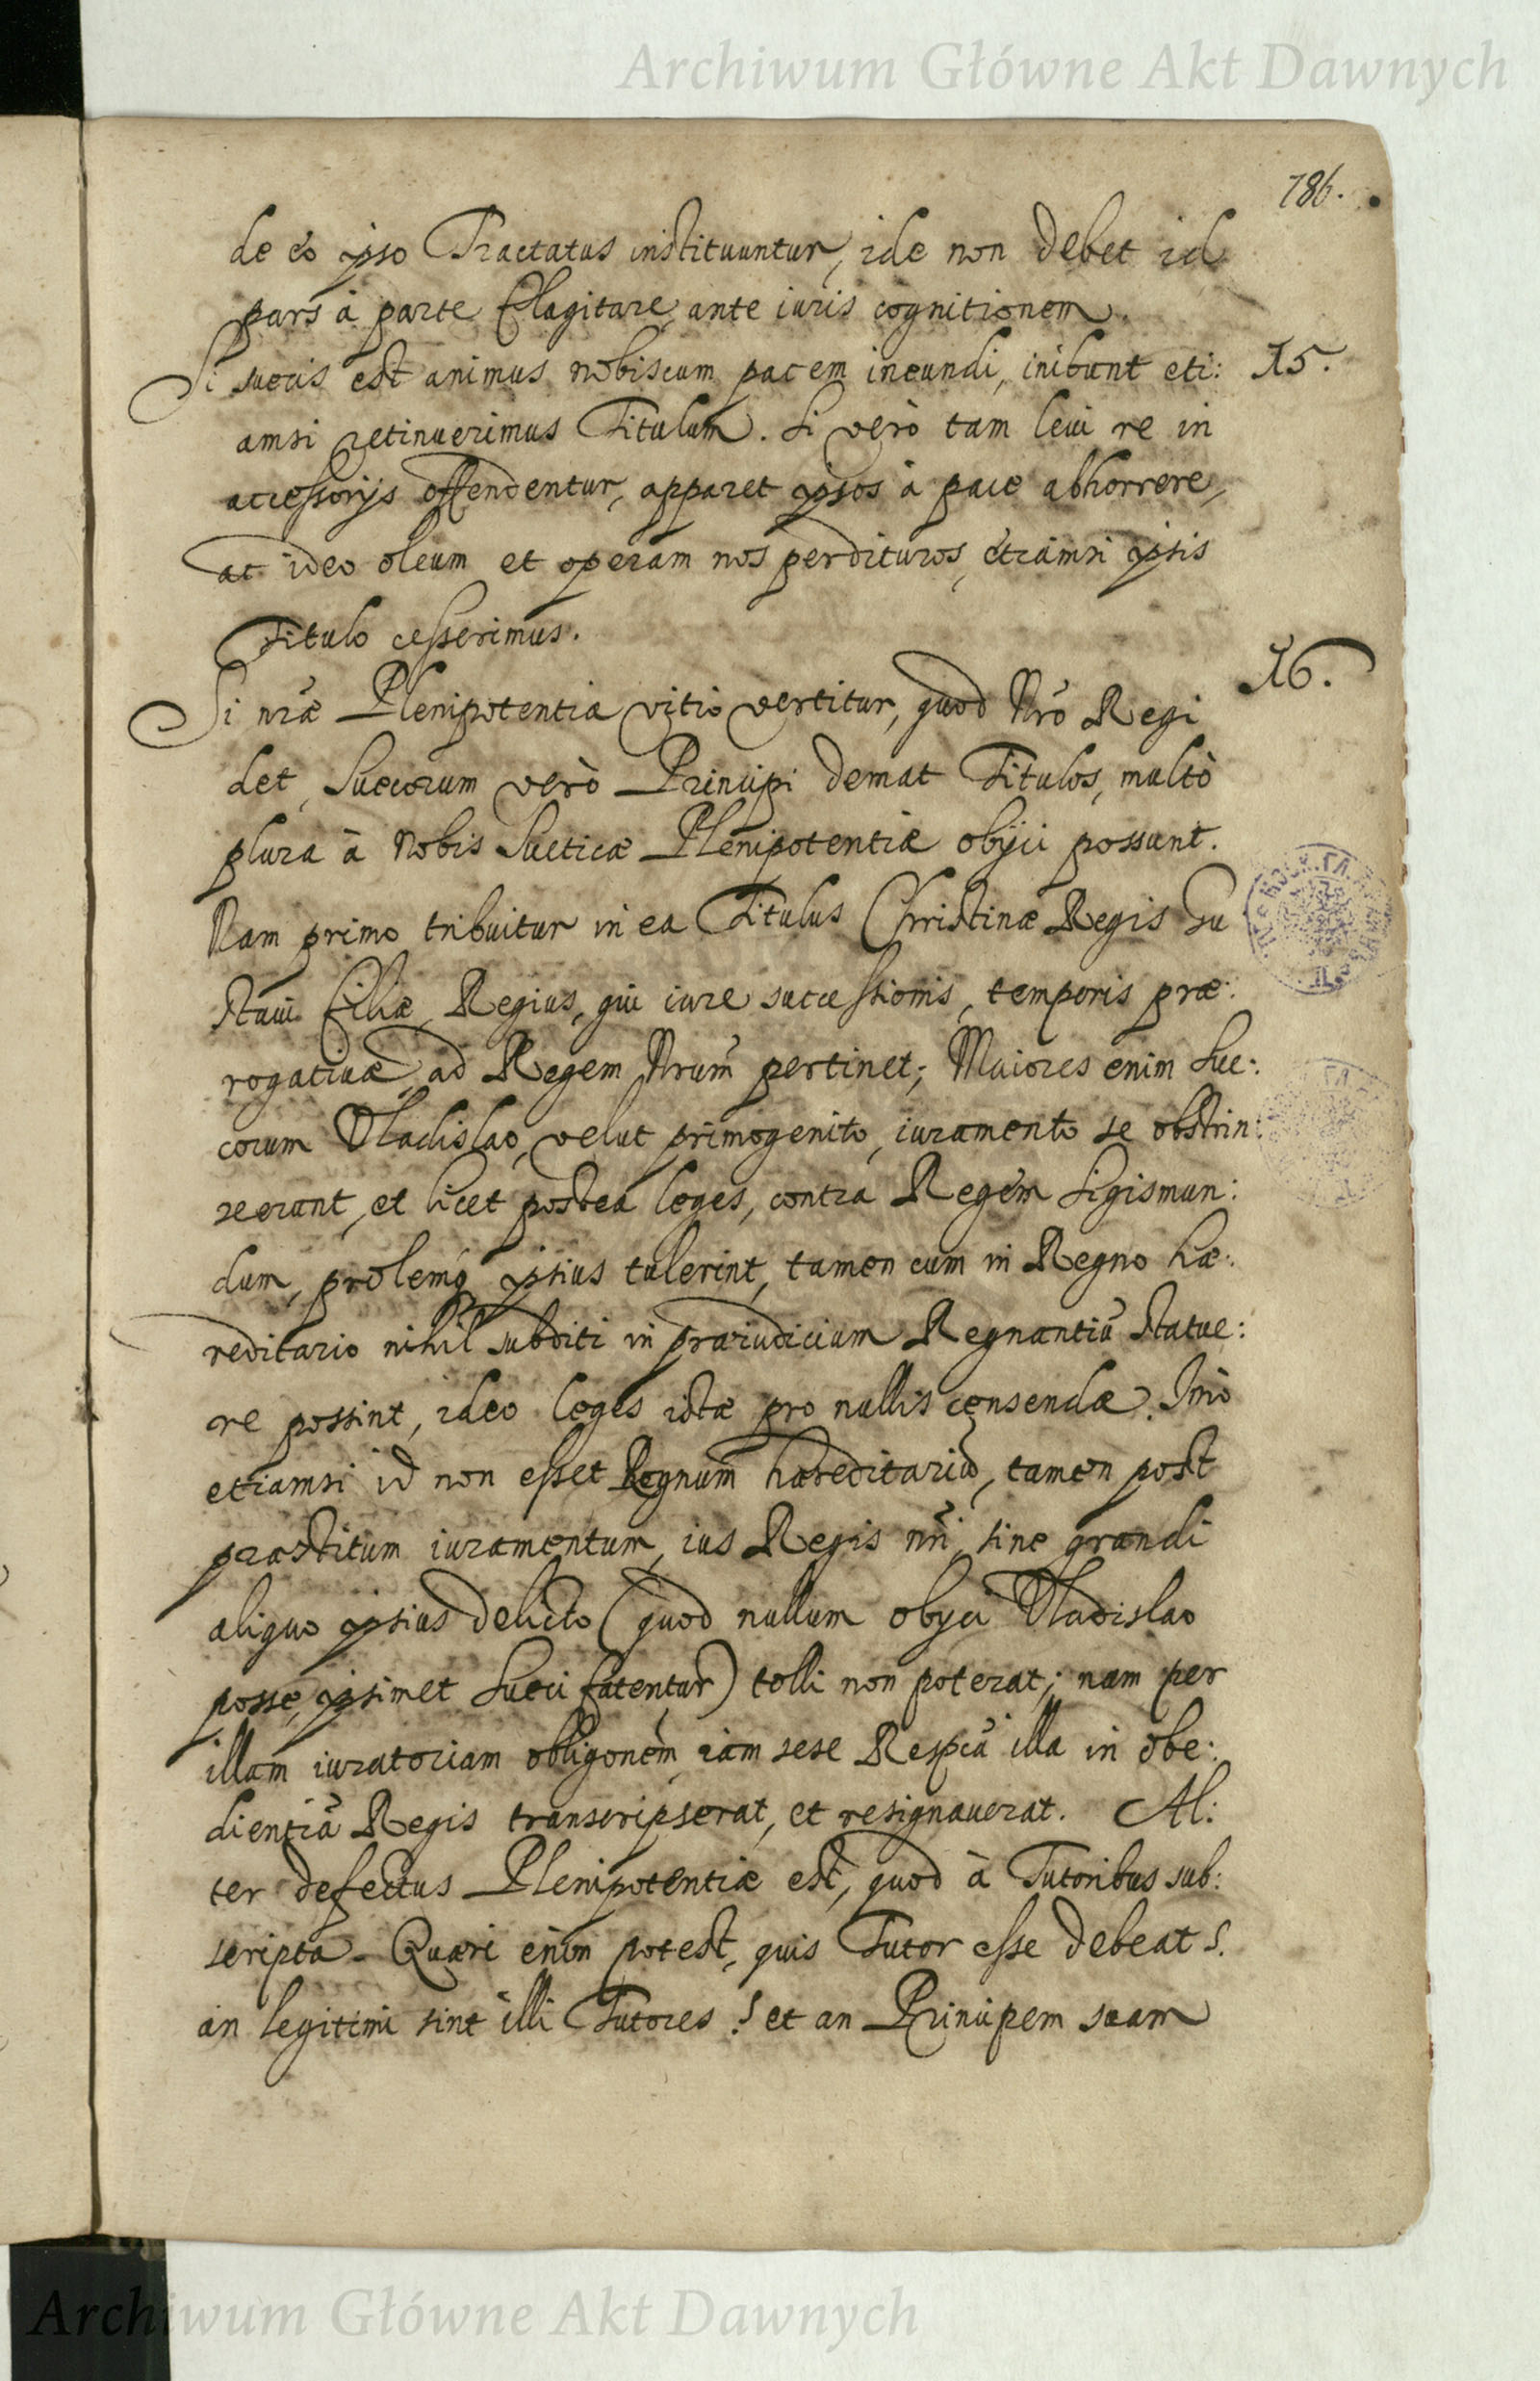 Archiwum Główne Akt Dawnych
786.
de eo ipso Tractatus instituuntur, ide non debet id
pars à parte flagitare, ante iuris cognitionem.
Si suecis est animus nobiscum pacem ineundi, inibunt eti: 15.
amsi retinuerimus Titulum. Si verò tam leui re in
accessorijs offendentur, apparet ipsos à pace abhorrere,
ac ideo oleum et operam nos perdituros, etiamsi ipsis
Titulo cesserimus.
16.
Si nræ Plenipotentiæ vitio vertitur, quod Nrô Regi
det, Suecorum verò Principi demat Titulos, multò
plura à Nobis Sueticæ Plenipotentiæ obijci possunt.
Nam primo tribuitur in ea Titulus Christinæ Regis Gu
staui filiæ, Regius, qui iure successionis, temporis præ:
rogatiuæ ad Regem Nrum pertinet; Maiores enim Sue:
corum Vladislao, velut primogenito, iuramento se obstrin:
xerant, et licet postea leges, contra Regem Sigismun:
dum, prolemq ipsius tulerint, tamen cum in Regno hæ:
reditario nihil subditi in præiudicium Regnantiũ statue:
re possint, ideo leges istæ pro nullis censendæ. Imò
etiamsi id non esset Regnum hæreditariũ, tamen post
præstitum iuramentum, ius Regis nri, sine grandi
aliquo ipsius delicto (quod nullum obijci Vladislao
posse, ipsimet Sueci fatentur) tolli non poterat; nam per
illam iuratoriam obligonem iam sese Respca illa in obe:
dientiã Regis transcripserat, et resignauerat. Al:
ter defectus Plenipotentiæ est, quod à Tutoribus sub:
scripta. Quæri enim potest, quis Tutor esse debeat?
an legitimi sint illi Tutores? et an Principem suam
Archiwum Główne Akt Dawnych